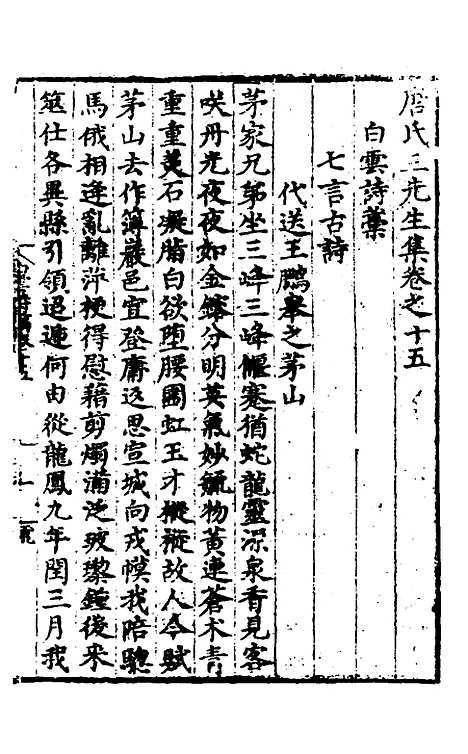 唐氏三先生集卷之十五
白雲詩藁
七言古詩
代送王鵬舉之茅山
茅家兄弟坐三峰三峰偃蹇猶蛇龍靈深泉香見客
咲丹光夜夜如金鎔分明英氣妙毓物黃連蒼术青
重重羙石凝脂白欲堕腰圍虹玉才摐摐故人今賦
茅山去作簿嚴邑宜登庸迟思宣城向戎幙我陪驄
馬俄相逢亂離萍梗得慰藉剪燭滿泛玻瓈鍾後来
筮仕各異縣引領迢遞何由從龍鳳九年閏三月我